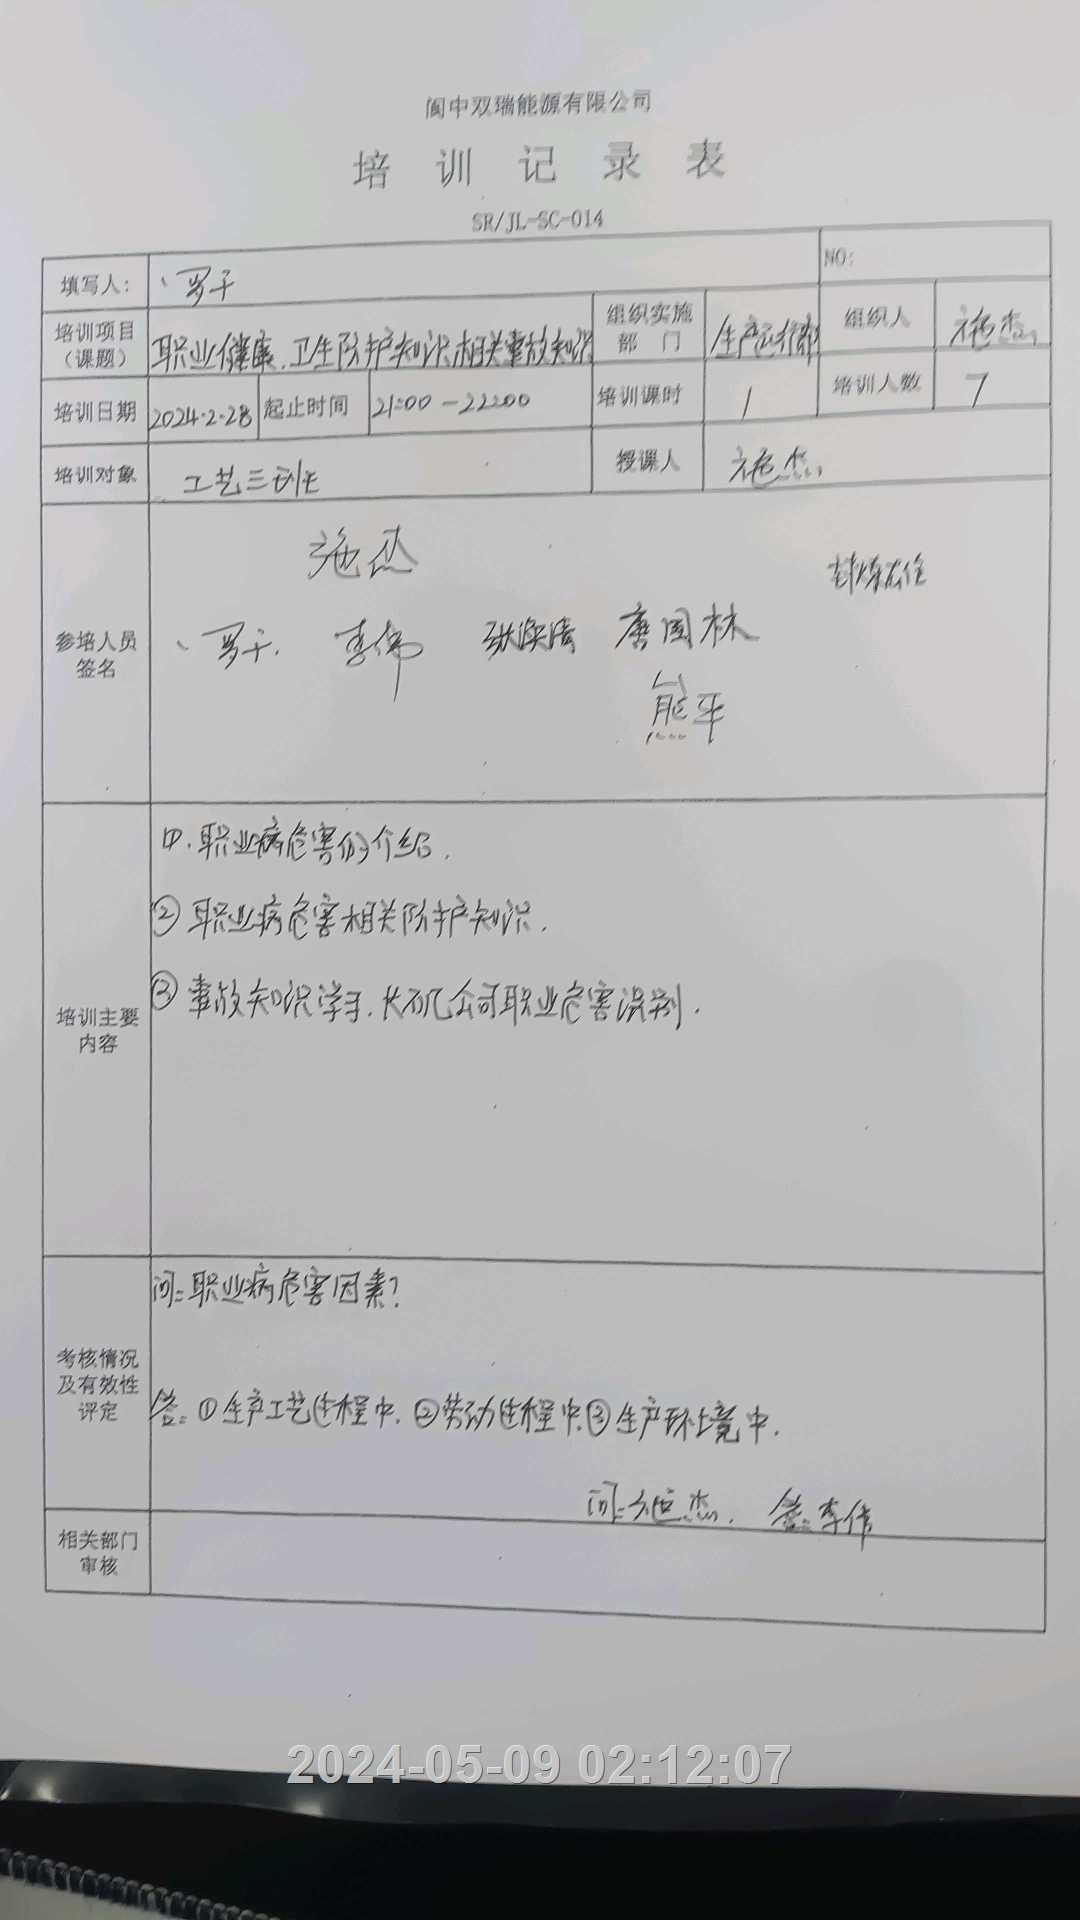 阆中双瑞能源有限公司
培训记录表
SR/JL-SC-014
填写人: 罗干 NO:
培训项目(课题) 职业健康、卫生防护知识相关事故知识 组织实施部门 生产运行部 组织人 施杰
培训日期 2024.2.28 起止时间 21:00-22:00 培训课时 1 培训人数 7
培训对象 工艺三班 授课人 施杰
参培人员签名
施杰
罗干. 李伟 唐国林
熊平
培训主要内容
①.职业病危害的介绍.
②职业病危害相关防护知识.
③事故知识学习. 公司职业危害识别.
考核情况及有效性评定
问:职业病危害因素?
答:①生产工艺过程中.②劳动过程中.③生产环境中.
问:施杰. 答:李伟
相关部门审核
2024-05-09 02:12:07